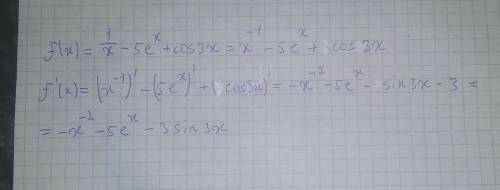 f(x) = 1/x - 5e^x + cos3x = x^-1 - 5e^x + cos3x
f'(x) = (x^-1)' - (5e^x)' + (cos3x)' = -x^-2 - 5e^x - sin3x - 3 =
= -x^-2 - 5e^x - 3sin3x